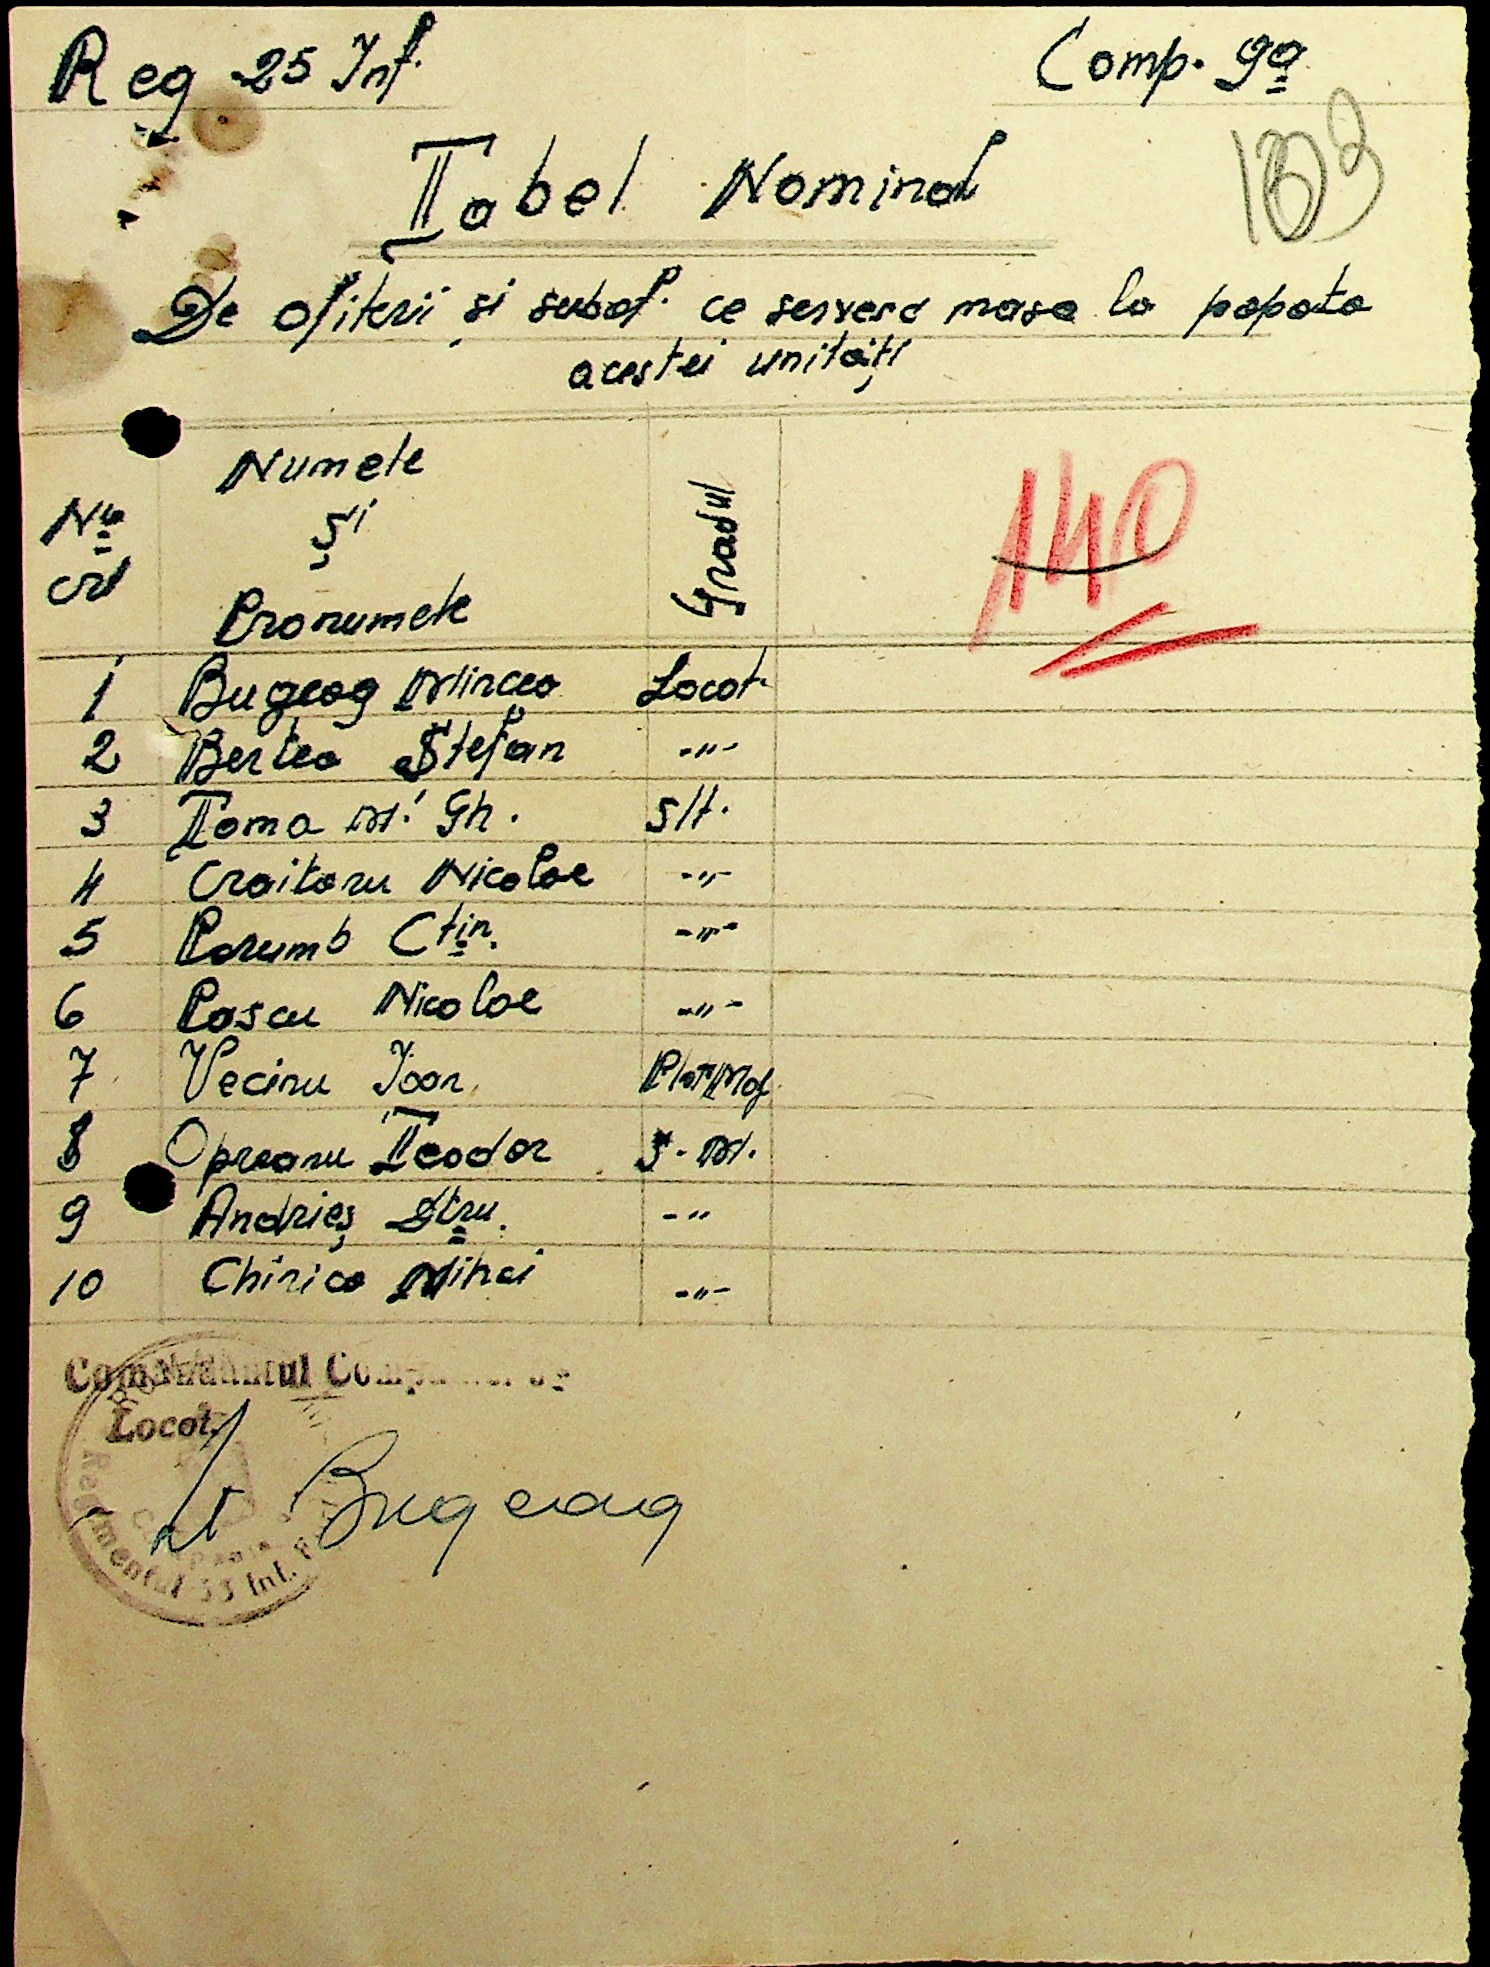 Reg 25 Inf. Comp. 9a
Tabel Nominal
De ofiterii și subof. ce serverc masa la popota
acestei unități
140
Nr. crt Numele și Pronumele Gradul
1 Bugeag Mircea Locot.
2 Bertea Ștefan -"-
3 Toma M. Gh. Slt.
4 Croitoru Nicolae -"-
5 Porumb Ctin. -"-
6 Pascu Nicolae -"-
7 Vecinu Ioan Plot Maj
8 Opreanu Teodor S. M.
9 Andrieș Dtru. -"
10 Chirica Mihai -"-
Comandantul
Locot.
Lt Bugeag
Regimentul 53 Inf.